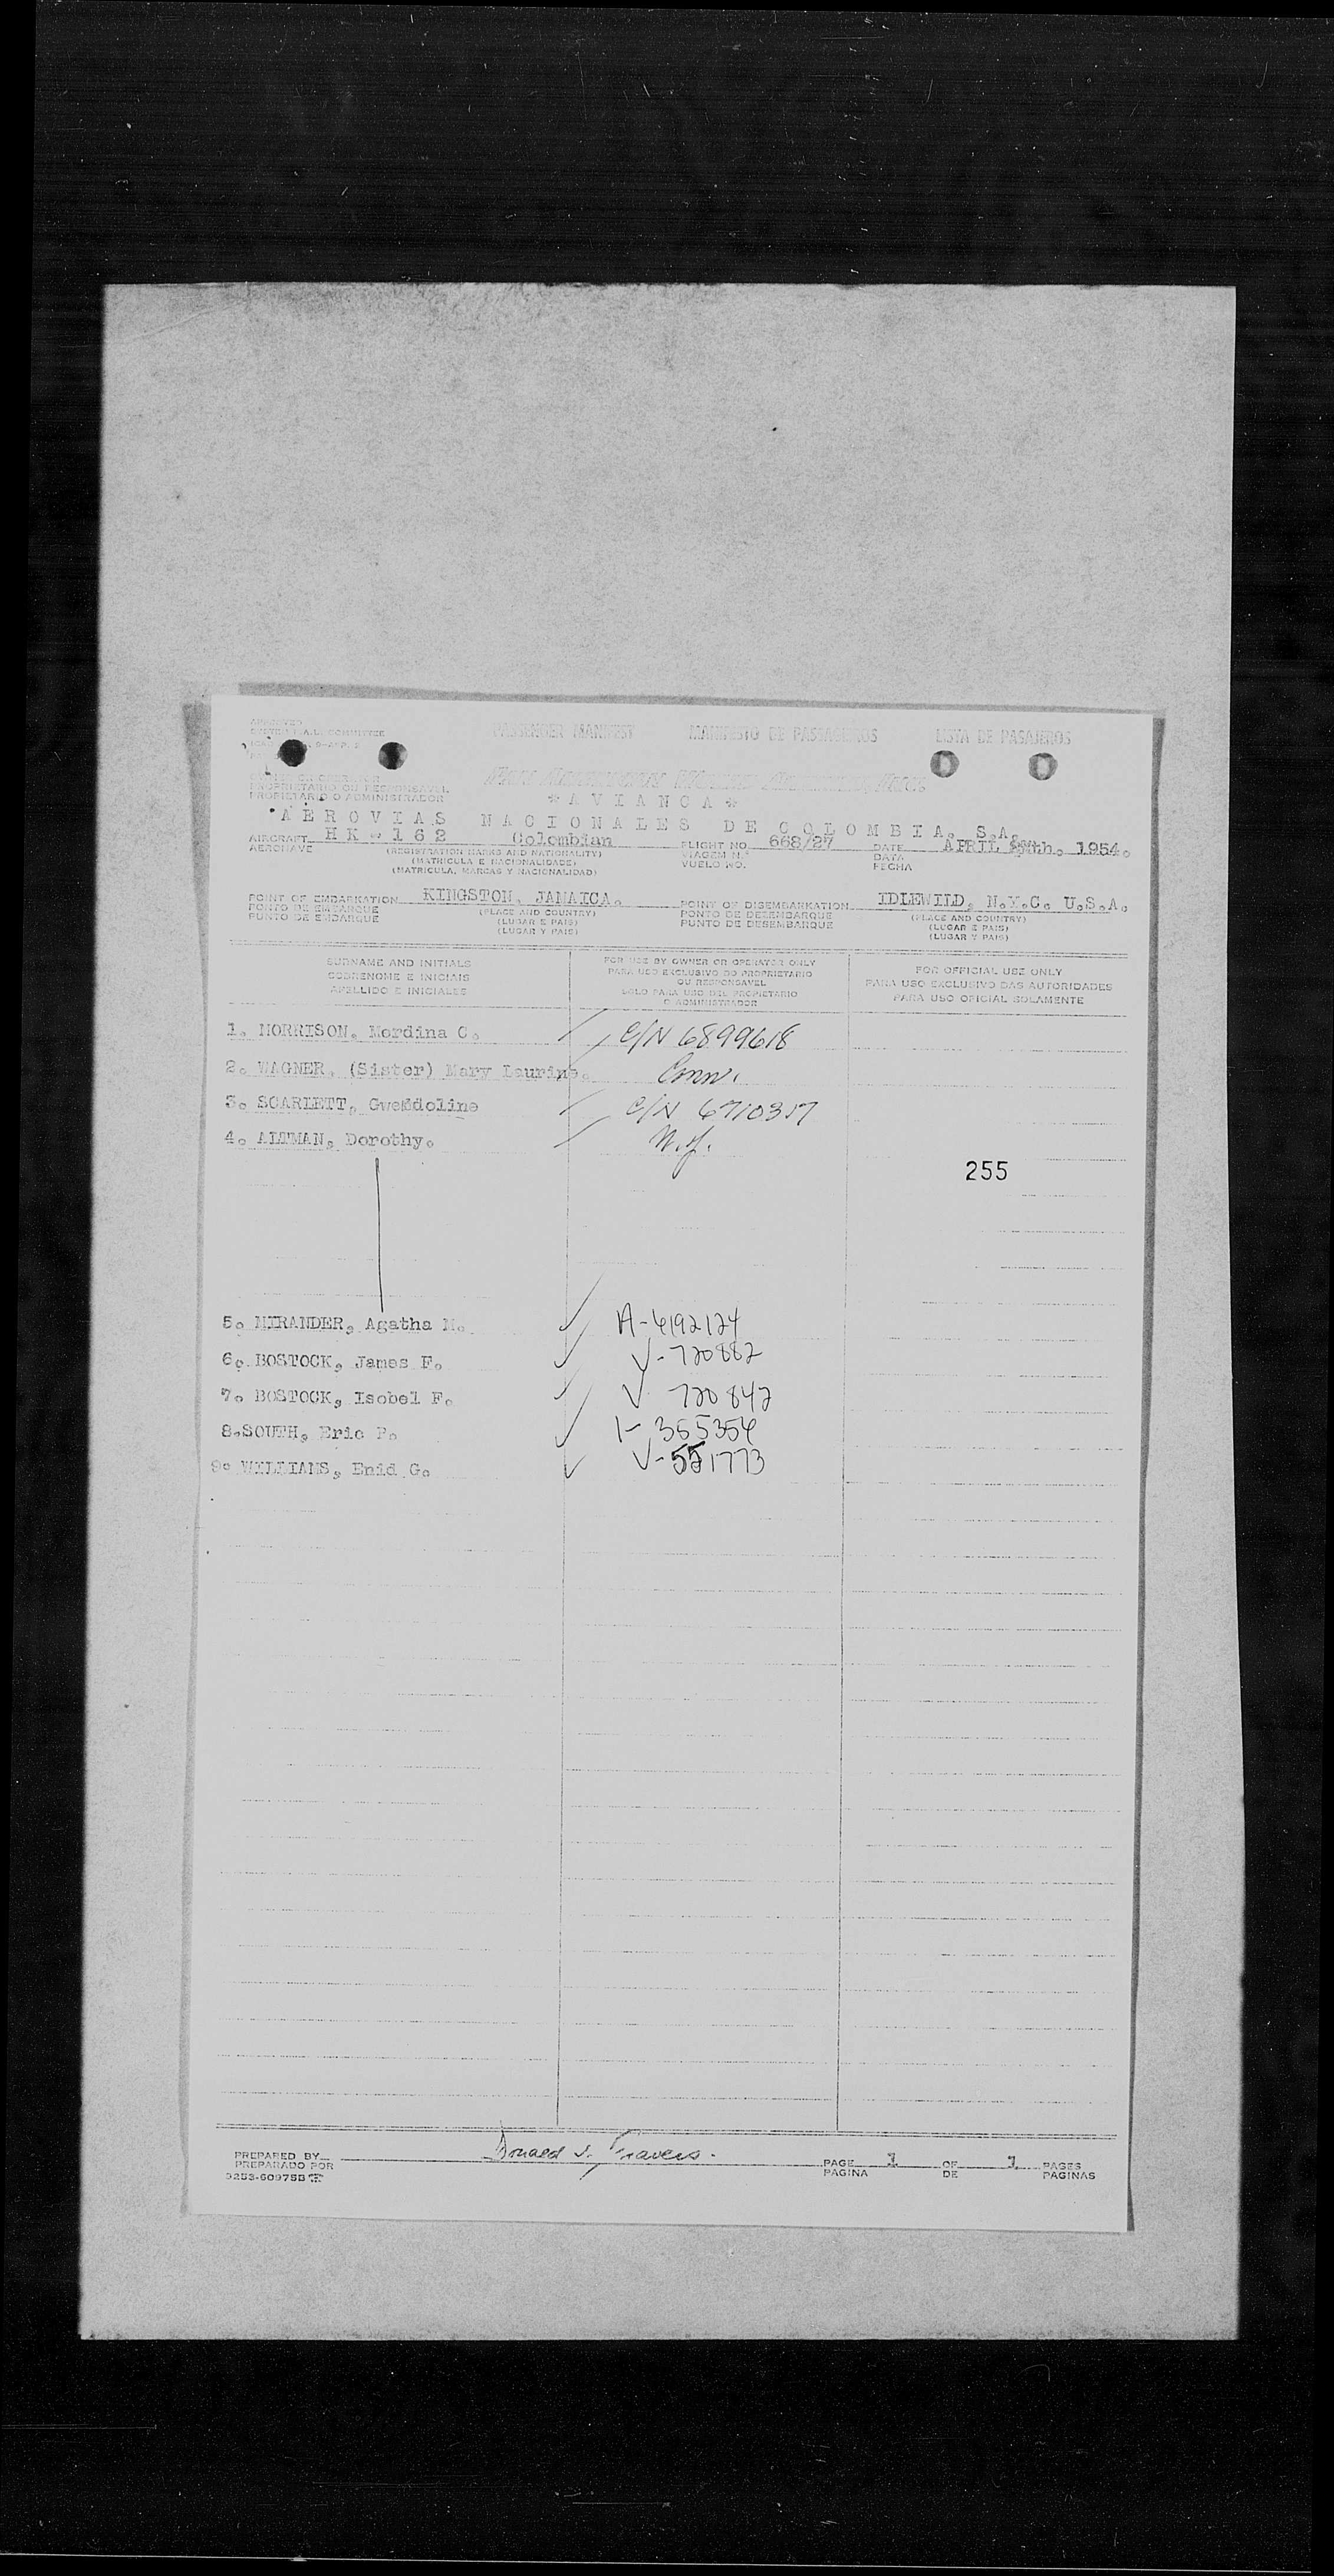 APPROVED
PASSENGER MANIFEST MANIFESTO DE PASSAGEIROS LISTA DE PASAJEROS
COMMITTEE
OWNER OR OPERATOR
PROPRIETARIO OU RESPONSAVEL
PROPIETARIO O ADMINISTRADOR
* A V I A N C A *
A E R O V I A S N A C I O N A L E S D E C O L O M B I A. S.A.
AIRCRAFT HK - 162 Colombian FLIGHT NO 668/27 DATE APRIL 1954.
AERONAVE (REGISTRATION MARKS AND NATIONALITY) VIAGEM N.º DATA
(MATRICULA E NACIONALIDADE) VUELO NO. FECHA
(MATRICULA, MARCAS Y NACIONALIDAD)
POINT OF EMBARKATION KINGSTON, JAMAICA. POINT OF DISEMBARKATION IDLEWILD, N.Y.C. U.S.A.
PONTO DE EMBARQUE (PLACE AND COUNTRY) PONTO DE DESEMBARQUE (PLACE AND COUNTRY)
PUNTO DE EMBARQUE (LUGAR E PAIS) PUNTO DE DESEMBARQUE (LUGAR E PAIS)
(LUGAR Y PAIS) (LUGAR Y PAIS)
SURNAME AND INITIALS FOR USE BY OWNER OR OPERATOR ONLY FOR OFFICIAL USE ONLY
COBRENOME E INICIAIS PARA USO EXCLUSIVO DO PROPRIETARIO PARA USO EXCLUSIVO DAS AUTORIDADES
APELLIDO E INICIALES OU RESPONSAVEL PARA USO OFICIAL SOLAMENTE
SOLO PARA USO DEL PROPIETARIO
O ADMINISTRADOR
1. MORRISON, Merdina C. C/N 6899618
2. WAGNER, (Sister) Mary Laurine. Conn.
3. SCARLETT, Gwendoline C/N 6710317
4. ALTMAN, Dorothy. N.Y.
255
5. MIRANDER, Agatha M. A-4192124
6. BOSTOCK, James F. V-720882
7. BOSTOCK, Isobel F. V 720842
8.SOUTH, Eric P. V-355354
9. WILLIAMS, Enid G. V-551773
PREPARED BY Donald J. Travers. PAGE 1 OF 1 PAGES
PREPARADO POR PAGINA DE PAGINAS
9253-60975B